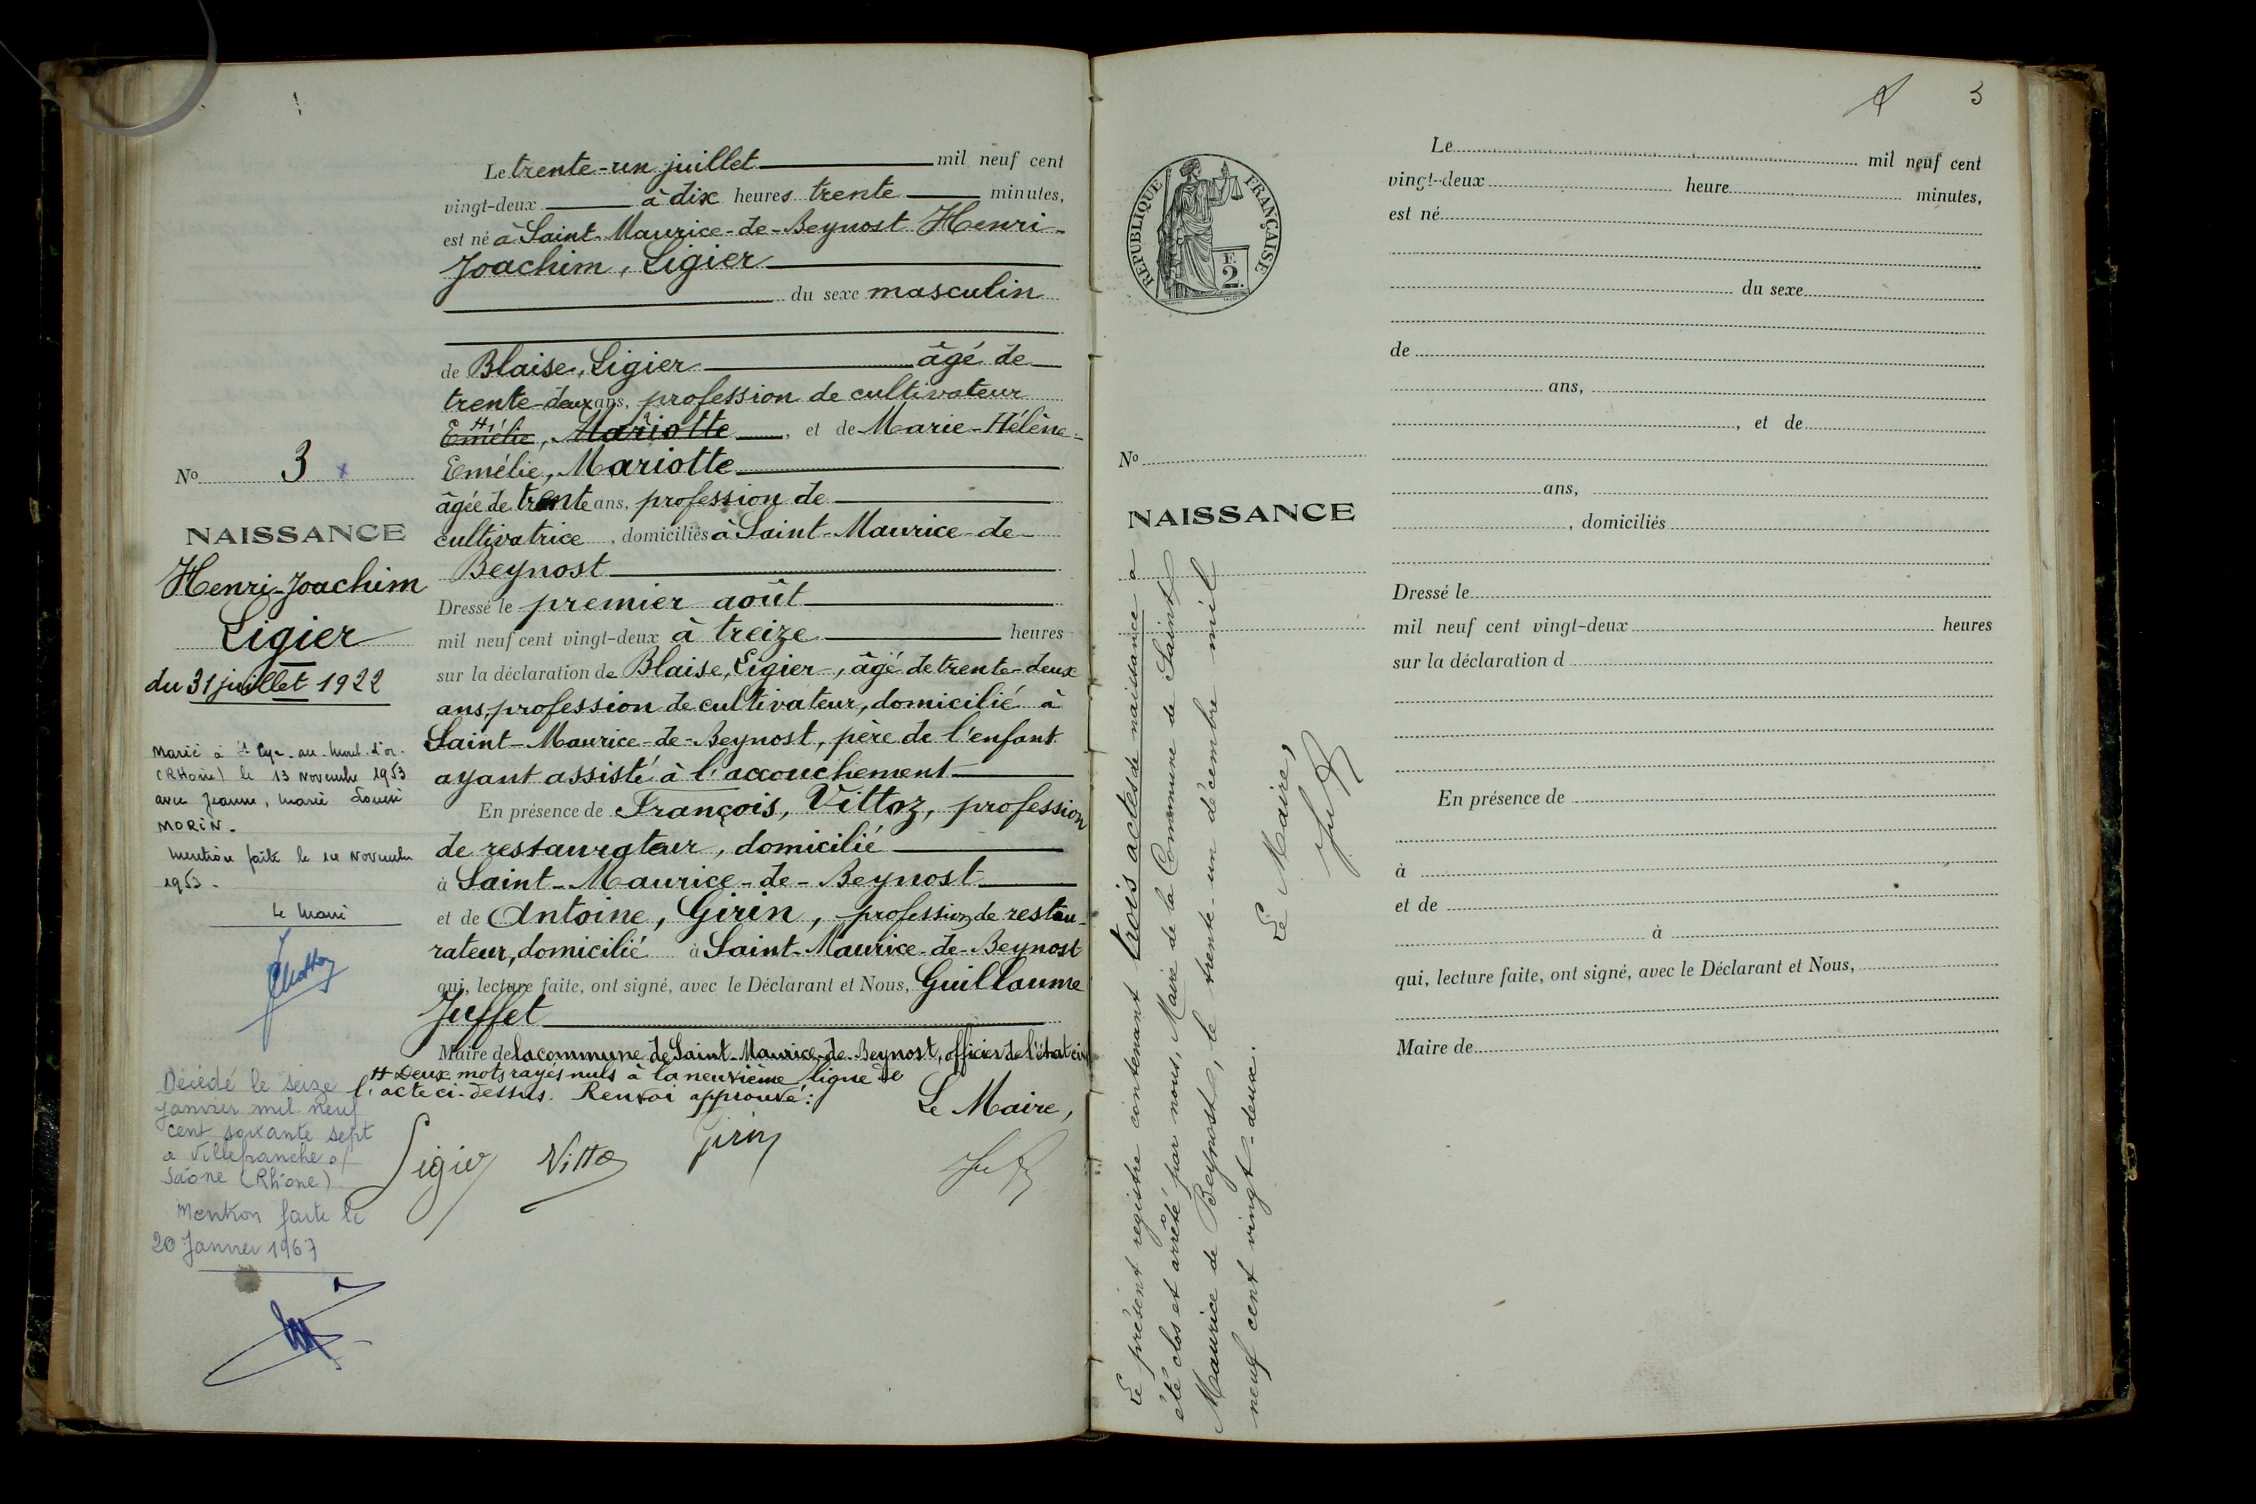 Le trente-un juillet mil neuf cent
vingt-deux à dix heures trente minutes,
est né à Saint-Maurice-de-Beynost Henri-
Joachim, Ligier
du sexe masculin
de Blaise, Ligier âgé de
trente-deux ans, profession de cultivateur
Emélie, Mariotte, et de Marie-Hélène-
Emélie, Mariotte
âgée de trente ans, profession de
cultivatrice, domiciliés à Saint-Maurice-de-
Beynost
Dressé le premier août
mil neuf cent vingt-deux à treize heures
sur la déclaration de Blaise, Ligier, âgé de trente-deux
ans, profession de cultivateur, domicilié à
Saint-Maurice-de-Beynost, père de l'enfant
ayant assisté à l'accouchement
En présence de François, Vittoz, profession
de restaurateur, domicilié
à Saint-Maurice-de-Beynost
et de Antoine, Girin, profession de restau-
rateur, domicilié à Saint-Maurice-de-Beynost
qui, lecture faite, ont signé, avec le Déclarant et Nous, Guillaume
Juffet
Maire de la commune de Saint-Maurice-de-Beynost, officier de l'état civil
# Deux mots rayés nuls à la neuvième ligne de
l'acte ci-dessus. Renvoi approuvé:
Le Maire,
Ligier Vittoz Girin
No 3 x
NAISSANCE
Henri-Joachim
Ligier
du 31 juillet 1922
Marié à St Cyr-au-Mont-d'or.
(RHône) le 13 Novembre 1953
avec Jeanne, Marie Louise
MORIN.
Mention faite le 14 Novembre
1953.
Le Maire
Décédé le seize
janvier mil neuf
cent soixante sept
à Villefranche s/
Saône (Rhône)
Mention faite le
20 Janvier 1967
3
RÉPUBLIQUE FRANÇAISE
F.
2.
No
NAISSANCE
Le présent registre contenant trois actes de naissance a
été clos et arrêté par nous, Maire de la Commune de Saint
Maurice de Beynost, le trente-un décembre mil
neuf cent vingt-deux.
Le Maire,
Le mil neuf cent
vingt-deux heure minutes,
est né
du sexe
de
ans,
, et de
ans,
, domiciliés
Dressé le
mil neuf cent vingt-deux heures
sur la déclaration d
En présence de
à
et de
à
qui, lecture faite, ont signé, avec le Déclarant et Nous,
Maire de